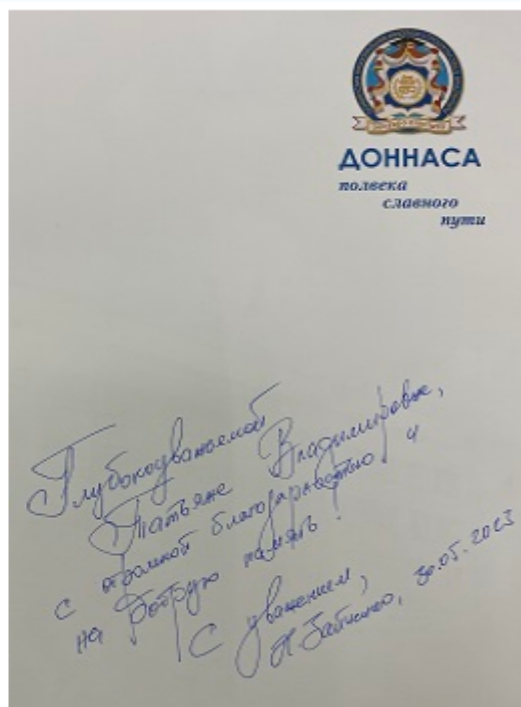 ДОННАСА
полвека
славного
пути
Глубокоуважаемой
Татьяне Владимировне,
с огромной благодарностью и
на добрую память!
С уважением,
30.05.2023